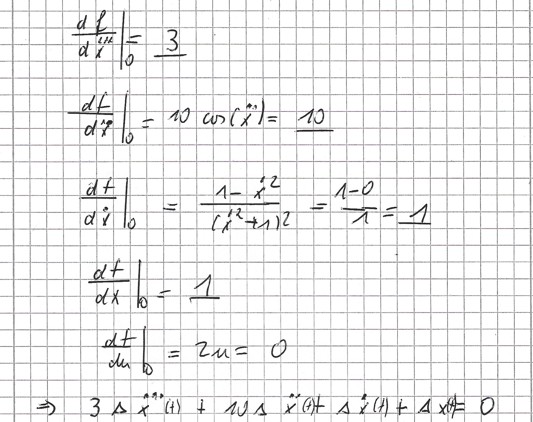 df/dx⃛|₀ = 3
df/dẍ|₀ = 10 cos(ẍ) = 10
df/dẋ|₀ = (1 - ẋ²)/((ẋ² + 1)²) = (1-0)/1 = 1
df/dx|₀ = 1
df/du|₀ = 2u = 0
⇒ 3 Δ x⃛(t) + 10 Δ ẍ(t) + Δ ẋ(t) + Δ x(t) = 0